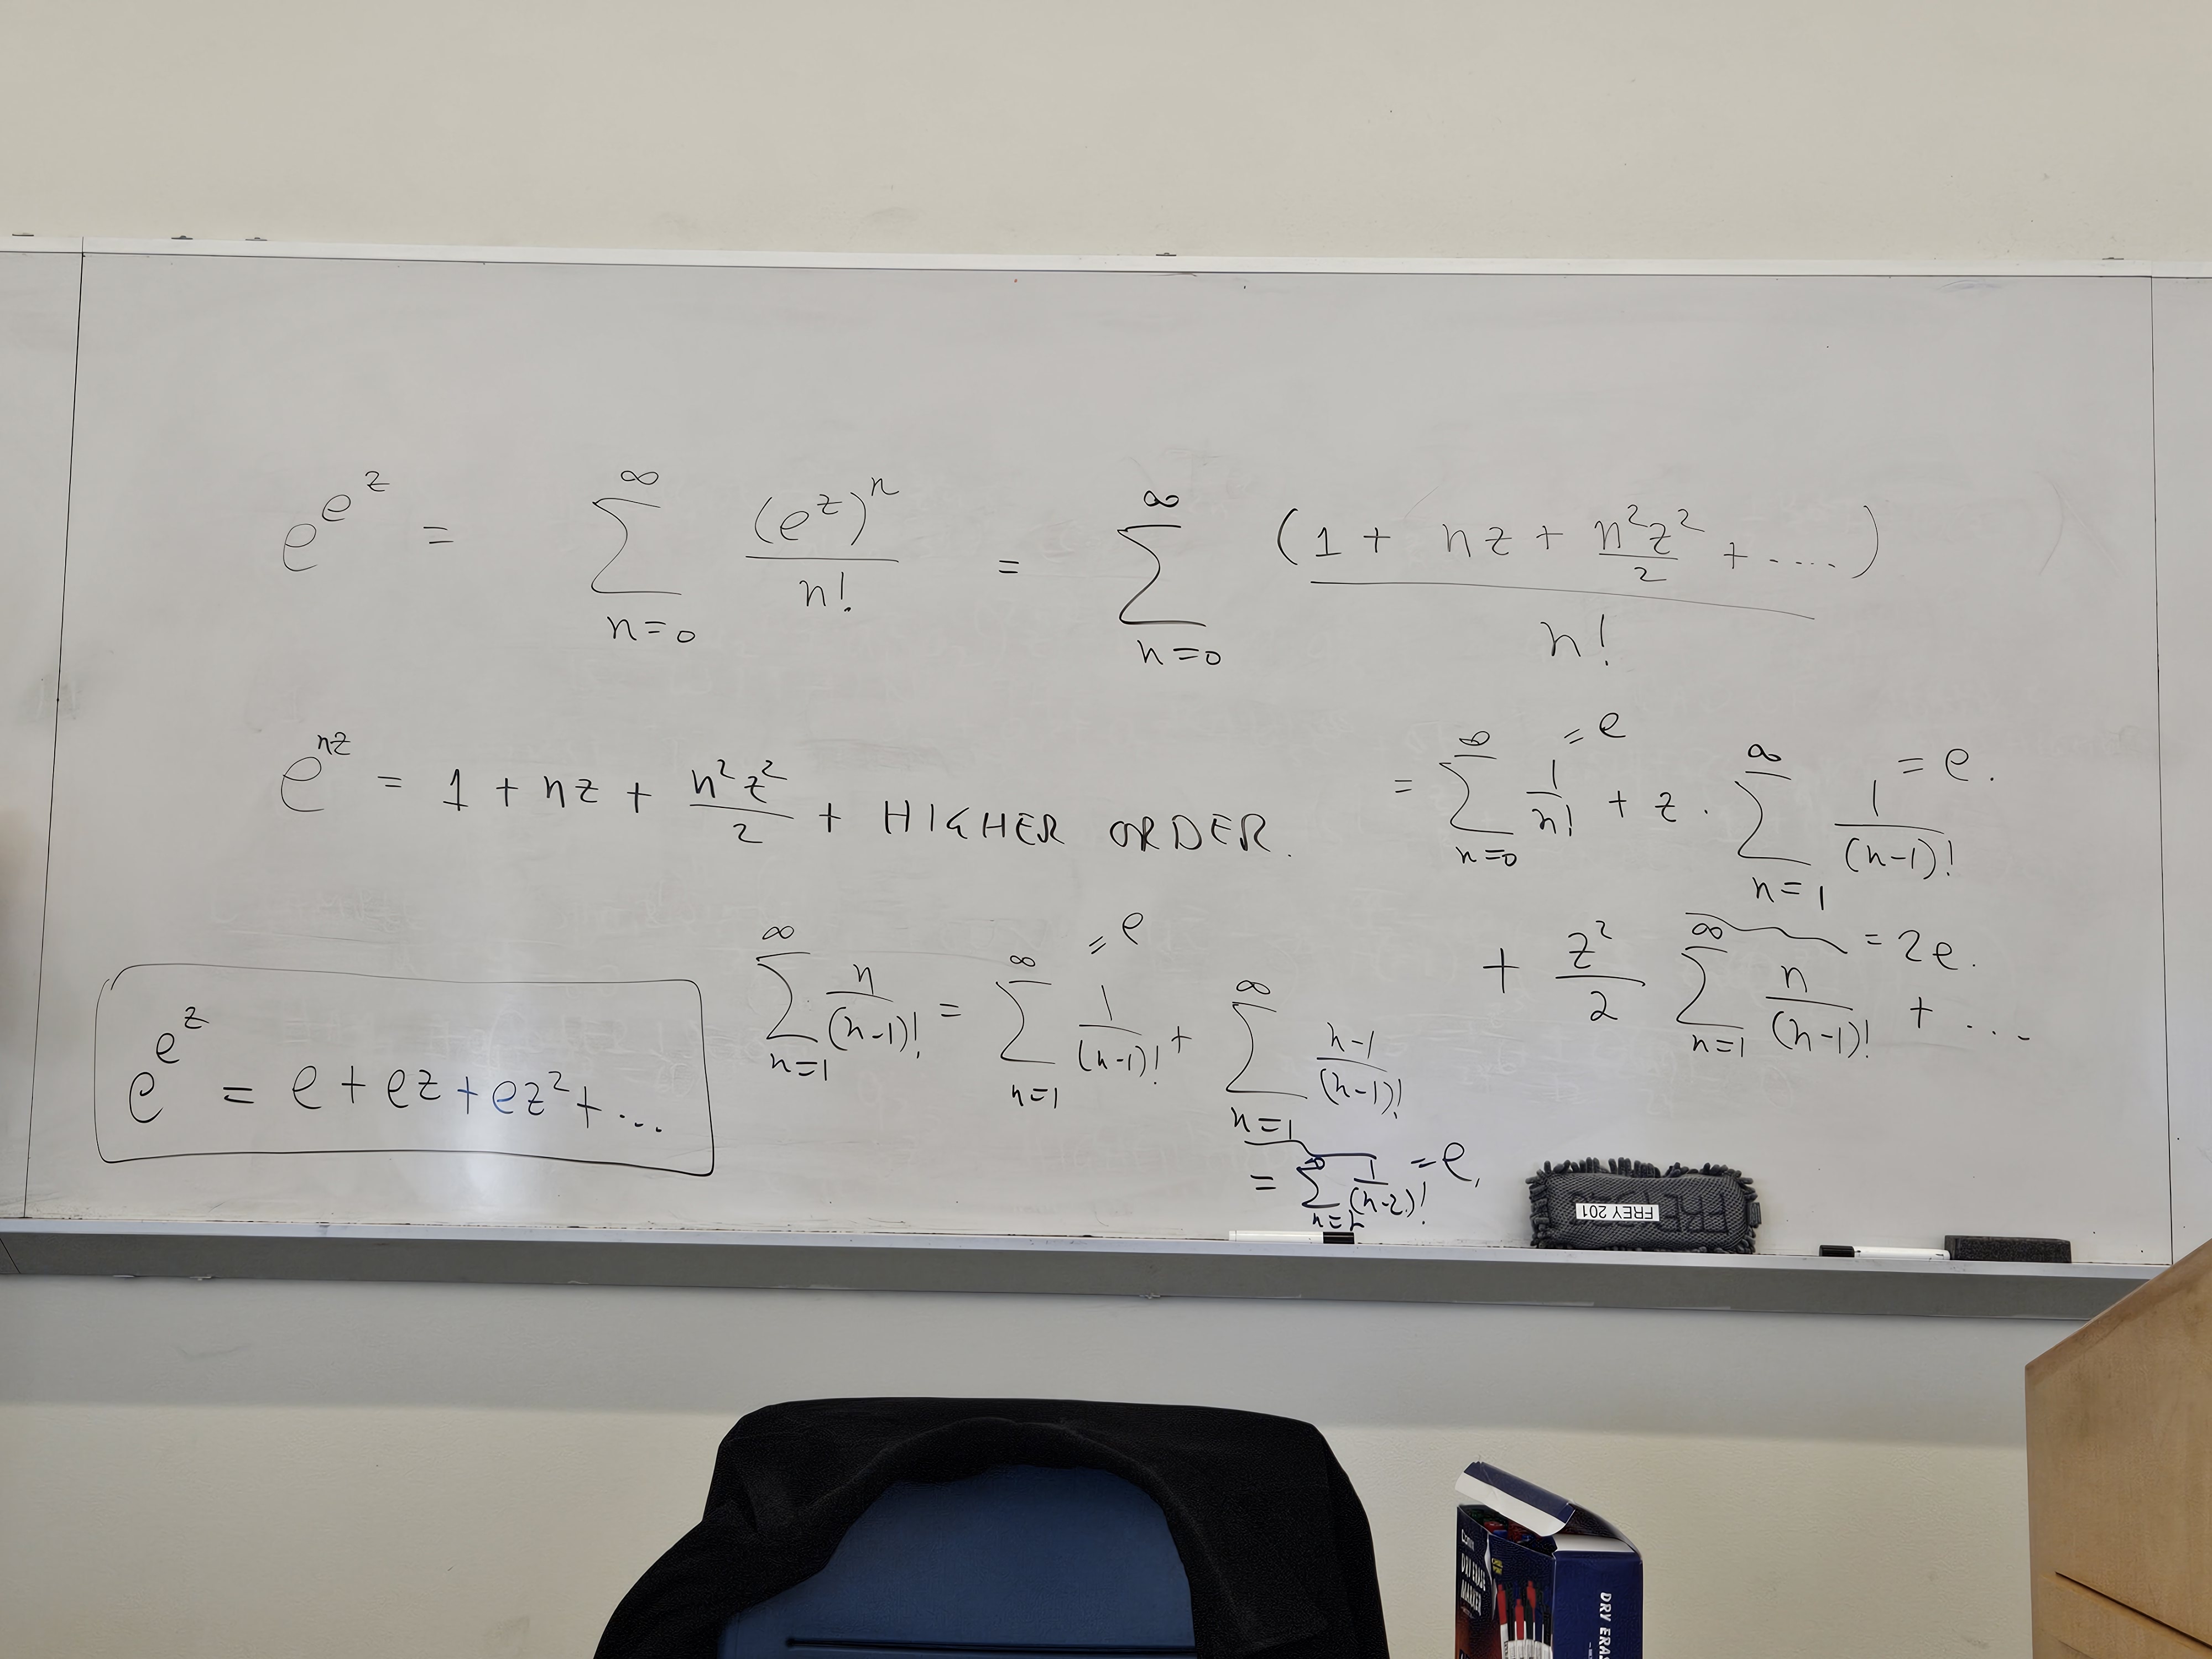 e^{e^z} = ∑_{n=0}^{∞} (e^z)^n / n! = ∑_{n=0}^{∞} (1 + nz + n²z²/2 + ....) / n!
e^{nz} = 1 + nz + n²z²/2 + HIGHER ORDER.
= ∑_{n=0}^{∞} 1/n! = e + z · ∑_{n=1}^{∞} 1/(n-1)! = e.
+ z²/2 ∑_{n=1}^{∞} n/(n-1)! = 2e. + ...
∑_{n=1}^{∞} n/(n-1)! = ∑_{n=1}^{∞} 1/(n-1)! = e + ∑_{n=1}^{∞} n-1/(n-1)!
= ∑_{n=2}^{∞} 1/(n-2)! = e,
e^{e^z} = e + ez + ez² + ...
FREY 201
DRY ERASE
MARKER
DRY ERAS